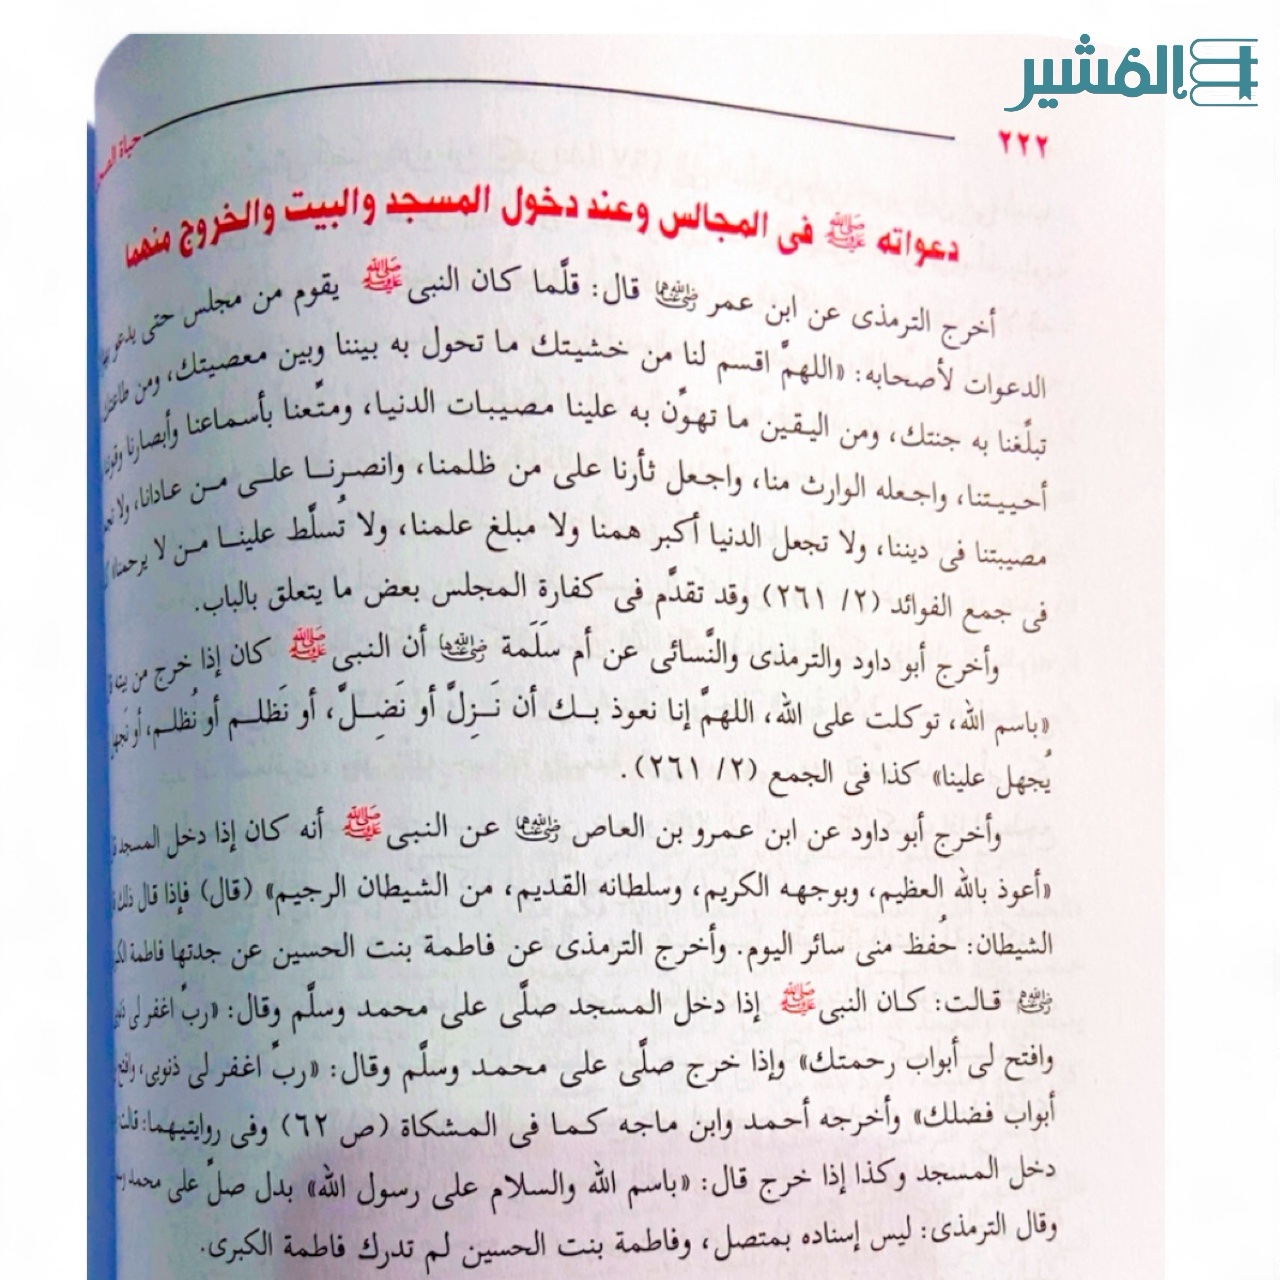 المشير
٢٢٢
حياة
دعواته ﷺ فى المجالس وعند دخول المسجد والبيت والخروج منهما
أخرج الترمذى عن ابن عمر رضي الله عنهما قال: قلَّما كان النبى ﷺ يقوم من مجلس حتى يدعو
الدعوات لأصحابه: «اللهمَّ اقسم لنا من خشيتك ما تحول به بيننا وبين معصيتك، ومن
تبلِّغنا به جنتك، ومن اليقين ما تهوِّن به علينا مصيبات الدنيا، ومتِّعنا بأسماعنا وأبصارنا
أحييتنا، واجعله الوارث منا، واجعل ثأرنا على من ظلمنا، وانصرنا على من عادانا، ولا
مصيبتنا فى ديننا، ولا تجعل الدنيا أكبر همنا ولا مبلغ علمنا، ولا تُسلَّط علينا من لا يرحمنا»
فى جمع الفوائد (٢/ ٢٦١) وقد تقدَّم فى كفارة المجلس بعض ما يتعلق بالباب.
وأخرج أبو داود والترمذى والنَّسائى عن أم سَلَمة رضي الله عنها أن النبى ﷺ كان إذا خرج من بيته
«باسم الله، توكلت على الله، اللهمَّ إنا نعوذ بك أن نَزِلَّ أو نَضِلَّ، أو نَظلم أو نُظلم، أو
يُجهل علينا» كذا فى الجمع (٢/ ٢٦١).
وأخرج أبو داود عن ابن عمرو بن العاص رضي الله عنهما عن النبى ﷺ أنه كان إذا دخل المسجد
«أعوذ بالله العظيم، وبوجهه الكريم، وسلطانه القديم، من الشيطان الرجيم» (قال) فإذا قال ذلك
الشيطان: حُفظ منى سائر اليوم. وأخرج الترمذى عن فاطمة بنت الحسين عن جدتها فاطمة
رضي الله عنها قالت: كان النبى ﷺ إذا دخل المسجد صلَّى على محمد وسلَّم وقال: «ربِّ اغفر لى
وافتح لى أبواب رحمتك» وإذا خرج صلَّى على محمد وسلَّم وقال: «ربِّ اغفر لى ذنوبى، وافتح
أبواب فضلك» وأخرجه أحمد وابن ماجه كما فى المشكاة (ص ٦٢) وفى روايتيهما: قالت
دخل المسجد وكذا إذا خرج قال: «باسم الله والسلام على رسول الله» بدل صلِّ على محمد
وقال الترمذى: ليس إسناده بمتصل، وفاطمة بنت الحسين لم تدرك فاطمة الكبرى.